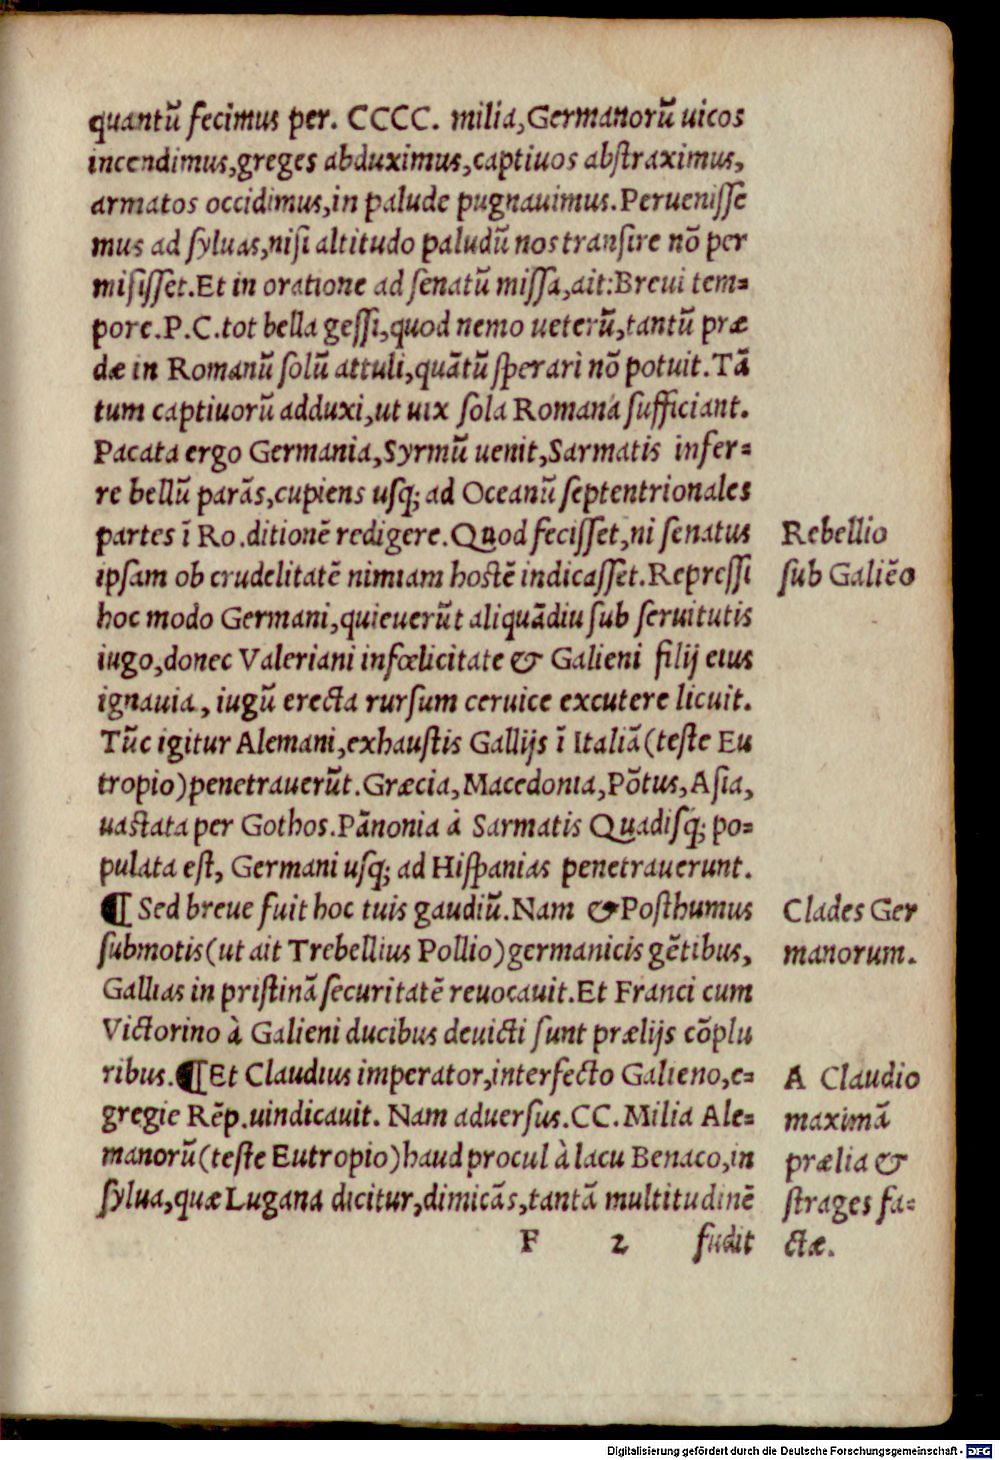 quantũ fecimus per. CCCC. milia,Germanorũ uicos
incendimus,greges abduximus,captiuos abſtraximus,
armatos occidimus,in palude pugnauimus.Perueniſſe
mus ad ſyluas,niſi altitudo paludũ nos tranſire nõ per
miſiſſet.Et in oratione ad ſenatũ miſſa,ait:Breui tem⸗
pore.P.C.tot bella geſſi,quod nemo ueterũ,tantũ præ
dæ in Romanũ ſolũ attuli,quãtũ ſperari nõ potuit.Tã
tum captiuorũ adduxi,ut uix ſola Romana ſufficiant.
Pacata ergo Germania,Syrmũ uenit,Sarmatis infer⸗
re bellũ parãs,cupiens uſq; ad Oceanũ ſeptentrionales
partes ĩ Ro.ditionẽ redigere.Quod feciſſet,ni ſenatus
ipſam ob crudelitatẽ nimiam hoſtẽ indicaſſet.Repreſſi
hoc modo Germani,quieuerũt aliquãdiu ſub ſeruitutis
iugo,donec Valeriani infœlicitate & Galieni filij eius
ignauia, iugũ erecta rurſum ceruice excutere licuit.
Tũc igitur Alemani,exhauſtis Gallijs ĩ Italiã(teſte Eu
tropio)penetrauerũt.Græcia,Macedonia,Põtus,Aſia,
uaſtata per Gothos.Pãnonia à Sarmatis Quadiſq; po⸗
pulata eſt, Germani uſq; ad Hiſpanias penetrauerunt.
¶ Sed breue fuit hoc tuis gaudiũ.Nam & Poſthumus
ſubmotis(ut ait Trebellius Pollio)germanicis gẽtibus,
Gallias in priſtinã ſecuritatẽ reuocauit.Et Franci cum
Victorino à Galieni ducibus deuicti ſunt prælijs cõplu
ribus.¶Et Claudius imperator,interfecto Galieno,e⸗
gregie Rẽp.uindicauit. Nam aduerſus.CC.Milia Ale⸗
manorũ(teſte Eutropio)haud procul à lacu Benaco,in
ſylua,quæ Lugana dicitur,dimicãs,tantã multitudinẽ
F 2 fudit
Rebellio
ſub Galiẽo
Clades Ger
manorum.
A Claudio
maximã
prælia &
ſtrages fa⸗
ctæ.
Digitalisierung gefördert durch die Deutsche Forschungsgemeinschaft - DFG